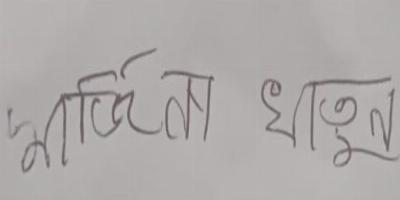 মার্জিনা খাতুন